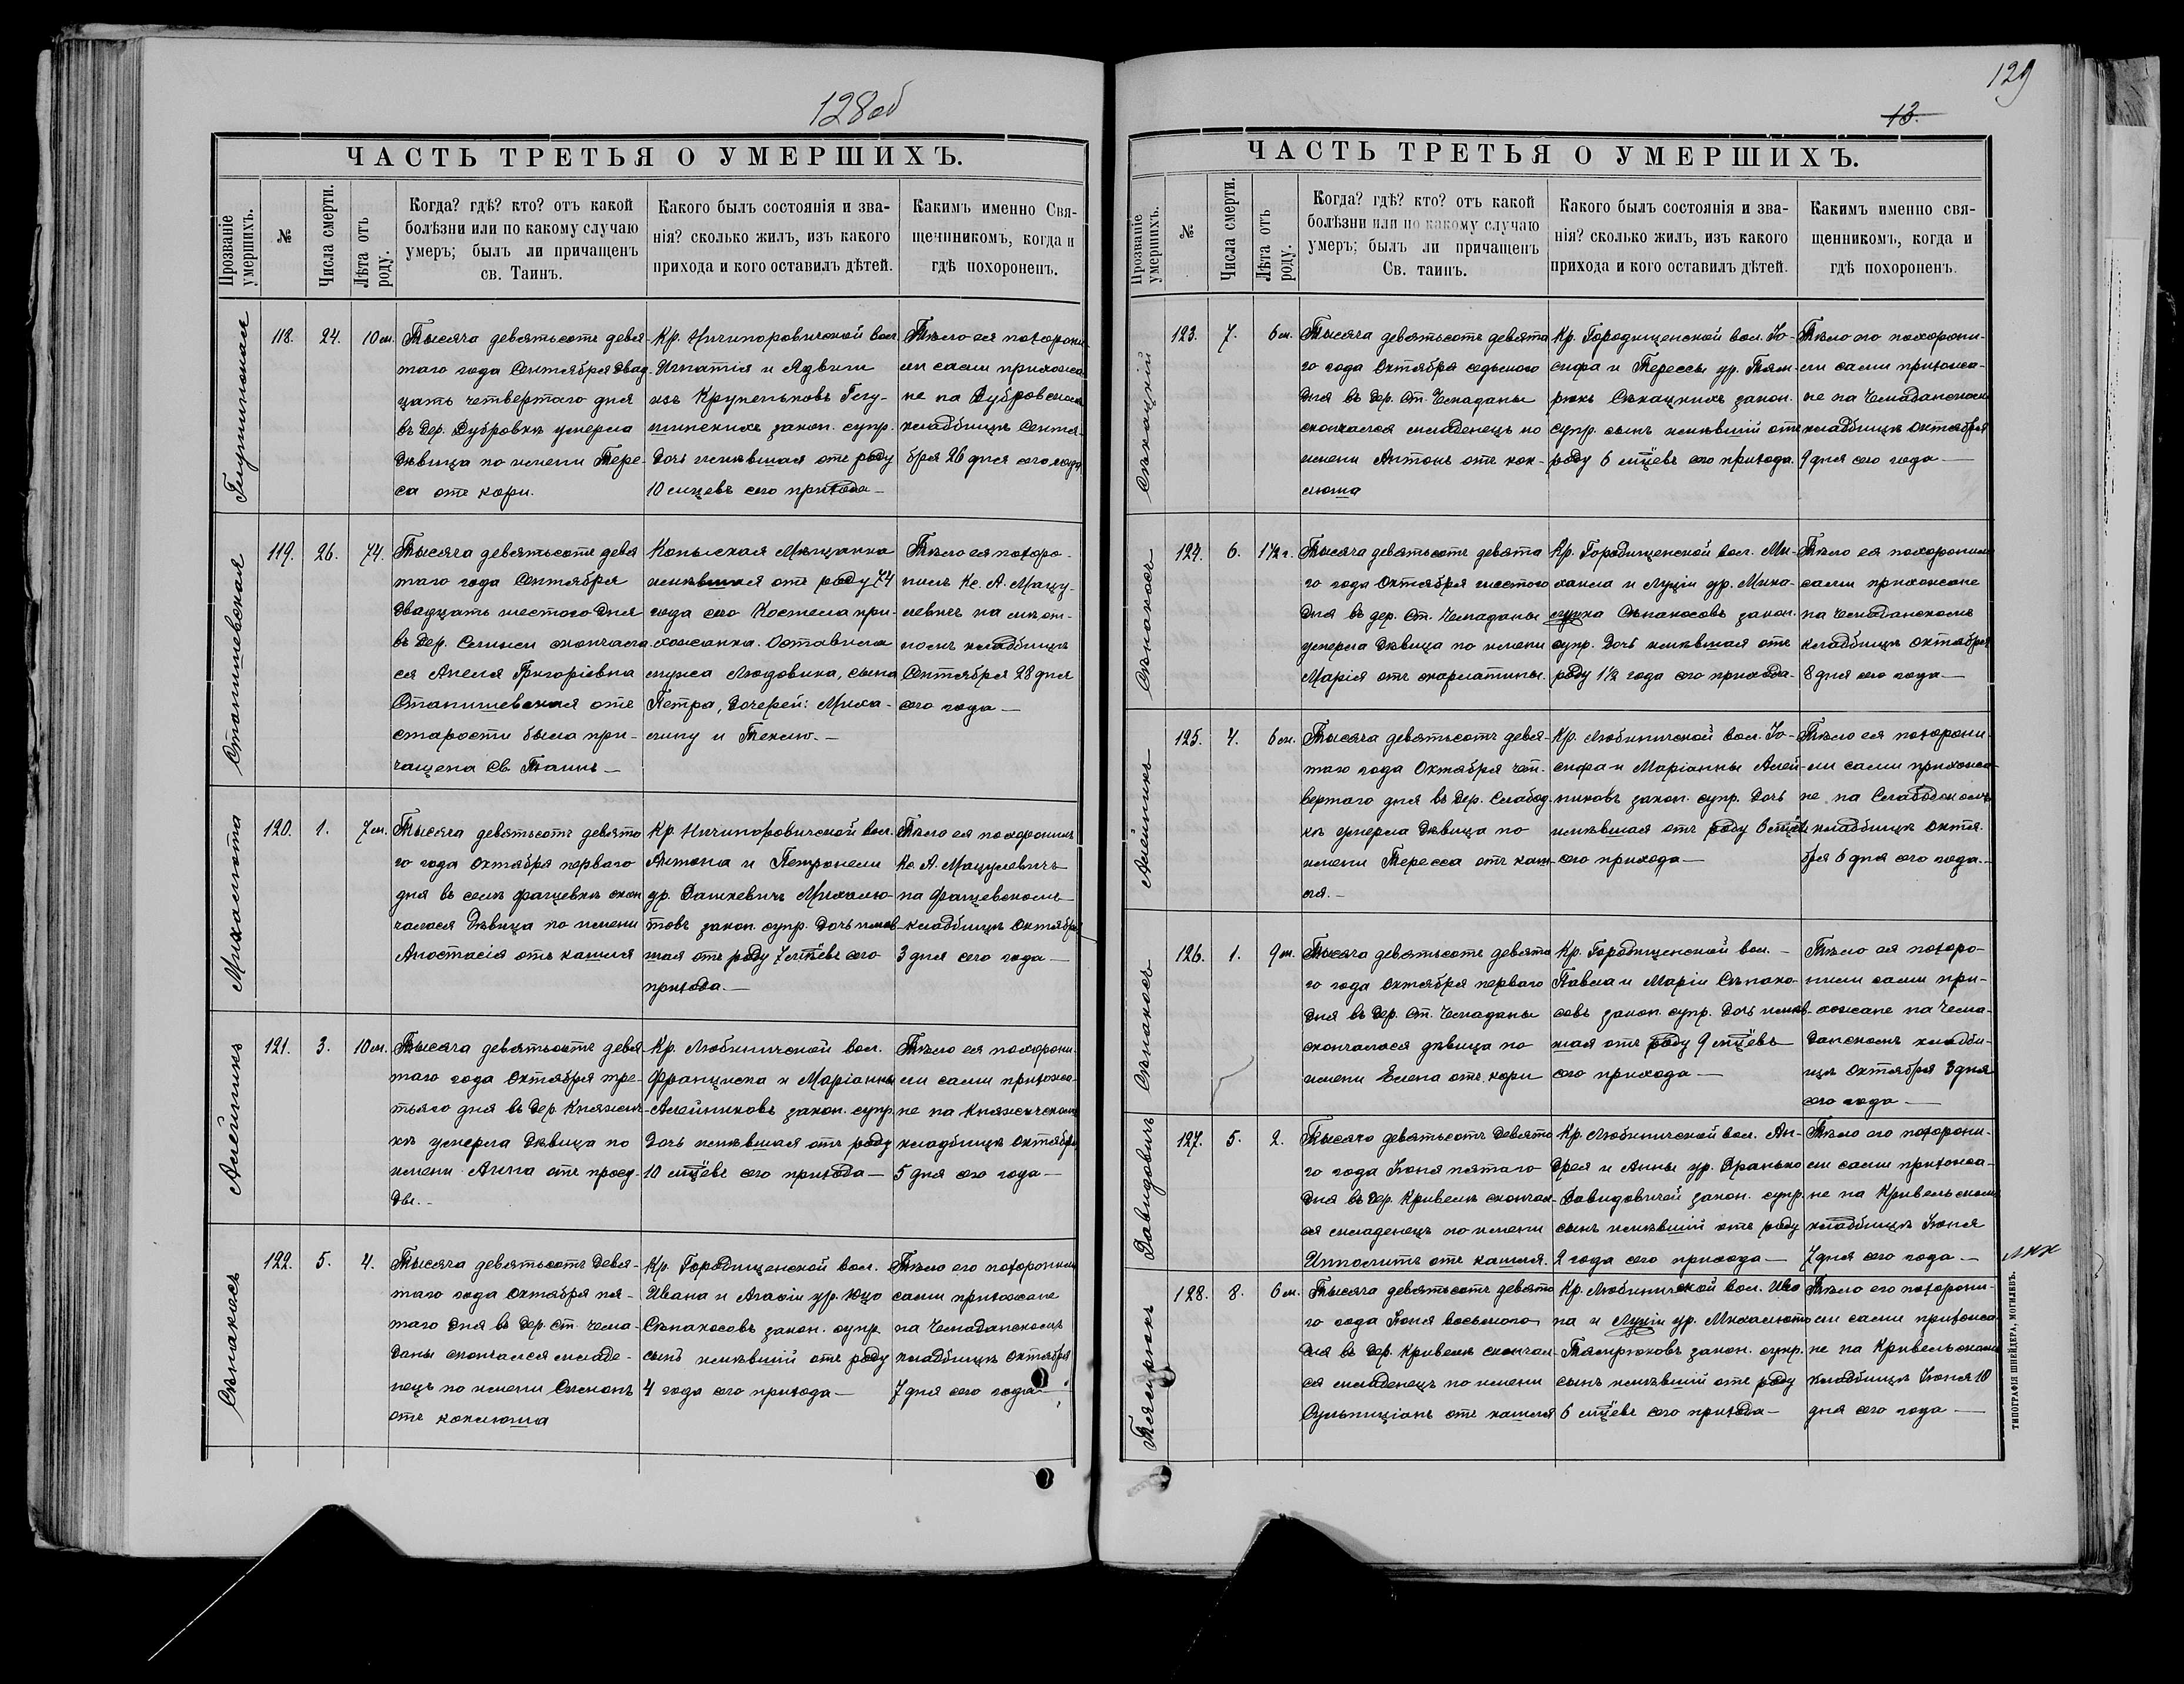 128об
ЧАСТЬ ТРЕТЬЯ О УМЕРШИХЪ.
Прозваніе умершихъ.
№
Числа смерти.
Лѣта отъ роду.
Когда? гдѣ? кто? отъ какой
болѣзни или по какому случаю
умеръ; былъ ли причащенъ
св. Таинъ.
Какого былъ состоянія и зва-
нія? сколько жилъ, изъ какого
прихода и кого оставилъ дѣтей.
Какимъ именно Свя-
щенникомъ, когда и
гдѣ похороненъ.
118. 24. 10 м.
Тысяча девятьсотъ девя-
таго года Сентября двад-
цать четвертаго дня
въ дер. Дубровкѣ умерла
дѣвица по имени Тере-
са отъ кори.
Кр. Ничипоровичской вол.
Игнатія и Ядвиги
изъ Крупеньковъ
закон. супр.
дочь имѣвшая отъ роду
10 мцевъ сего прихода —
Тѣло ея похорони-
ли сами прихожа-
не на Дубровском
кладбищѣ Сентя-
бря 26 дня сего года
Станишевская
119. 26. 74.
Тысяча девятьсотъ девя
таго года Сентября
двадцать шестого дня
въ дер. скончала
ся Анеля Григоріевна
Станишевская отъ
старости была при-
чащена Св. Таинъ —
Копыская Мѣщанка
имѣвшая отъ роду 74
года сего Костела при-
хожанка. Оставила
мужа Людовика, сына
Петра, дочерей: Миха-
лину и Теклю. —
Тѣло ея похоро-
нилъ Кс. А. Мацу-
левичъ на мѣст-
номъ кладбищѣ
Сентября 28 дня
сего года —
Михалюта
120. 1. 7 м.
Тысяча девятьсотъ девята
го года Октября перваго
дня въ селѣ Фащевкѣ скон
чалася дѣвица по имени
Анастасія отъ кашля
Кр. Ничипоровичской вол.
Антона и Петронели
ур. Дашкевичъ Михалю-
товъ закон. супр. дочь имѣв-
шая отъ роду 7 мцевъ сего
прихода. —
Тѣло ея похоронилъ
Кс. А. Мацулевичъ
на Фащевскомъ
кладбищѣ Октября
3 дня сего года —
Алейникъ
121. 3. 10 м.
Тысяча девятьсотъ девя-
таго года Октября тре-
тьяго дня въ дер. Княжич-
кѣ умерла дѣвица по
имени Анна отъ просту-
ды. —
Кр. Любиничской вол.
Франциска и Маріанны
Алейниковъ закон. супр.
дочь имѣвшая отъ роду
10 мцевъ сего прихода —
Тѣло ея похорони-
ли сами прихожа-
не на Княжичском
кладбищѣ Октября
5 дня сего года —
Сѣнакосъ
122. 5. 4.
Тысяча девятьсотъ девя-
таго года Октября пя-
таго дня въ дер. Ст. Чема-
даны скончался младе-
нецъ по имени Симонъ
отъ коклюша
Кр. Городищенской вол.
Ивана и Агафіи ур. Юцо
Сѣнакосовъ закон. супр.
сынъ имѣвшій отъ роду
4 года сего прихода —
Тѣло его похоронили
сами прихожане
на Чемаданскомъ
кладбищѣ Октября
7 дня сего года —
129
13.
ЧАСТЬ ТРЕТЬЯ О УМЕРШИХЪ.
Прозваніе умершихъ.
№
Числа смерти.
Лѣта отъ роду.
Когда? гдѣ? кто? отъ какой
болѣзни или по какому случаю
умеръ; былъ ли причащенъ
Св. таинъ.
Какого былъ состоянія и зва-
нія? сколько жилъ, изъ какого
прихода и кого оставилъ дѣтей.
Какимъ именно свя-
щенникомъ, когда и
гдѣ похороненъ.
123. 7. 6 м.
Тысяча девятьсотъ девята
го года Октября седьмого
дня въ дер. Ст. Чемаданы
скончался младенецъ по
имени Антонъ отъ кок-
люша
Кр. Городищенской вол. Іо-
сифа и Терессы ур. Тям-
рюкъ закон.
супр. сынъ имѣвшій отъ
роду 6 мцевъ сего прихода.
Тѣло его похорони-
ли сами прихожа-
не на Чемаданском
кладбищѣ Октября
9 дня сего года —
Сѣнакосъ
124. 6. 1½ г.
Тысяча девятьсотъ девята
го года Октября шестого
дня въ дер. Ст. Чемаданы
умерла дѣвица по имени
Марія отъ скарлатины.
Кр. Городищенской вол. Ми-
хаила и Луціи ур.
Сѣнакосовъ закон.
супр. дочь имѣвшая отъ
роду 1½ года сего прихода
Тѣло ея похоронили
сами прихожане
на Чемаданскомъ
кладбищѣ Октября
8 дня сего года —
Алейникъ
125. 4. 6 м.
Тысяча девятьсотъ девя-
таго года Октября чет-
вертаго дня въ дер. Слабод-
кѣ умерла дѣвица по
имени Тересса отъ каш-
ля. —
Кр. Любиничской вол. Іо-
сифа и Маріанны Алей-
никовъ закон. супр. дочь
имѣвшая отъ роду 6 мцевъ
сего прихода —
Тѣло ея похорони-
ли сами прихожа-
не на Слабодскомъ
кладбищѣ Октя-
бря 6 дня сего года. —
Сѣнакосъ
126. 1. 9 м.
Тысяча девятьсотъ девята
го года Октября перваго
дня въ дер. Ст. Чемаданы
скончалася дѣвица по
имени Елена отъ кори
Кр. Городищенской вол. —
Павла и Маріи Сѣнако-
совъ закон. супр. дочь имѣв-
шая отъ роду 9 мцевъ
сего прихода —
Тѣло ея похоро-
нили сами при-
хожане на Чема-
данскомъ кладби-
щѣ Октября 3 дня
сего года —
Давидовичъ
127. 5. 2.
Тысяча девятьсотъ девята
го года Іюня пятаго
дня въ дер. Кривелѣ скончал-
ся младенецъ по имени
Ипполитъ отъ кашля.
Кр. Любиничской вол. Ан-
дрея и Анны ур. Дранько
Давидовичей закон. супр.
сынъ имѣвшій отъ роду
2 года сего прихода —
Тѣло его похорони-
ли сами прихожа-
не на Кривельском
кладбищѣ Іюня
7 дня сего года —
Тямрюкъ
128. 8. 6 м.
Тысяча девятьсотъ девята
го года Іюня восьмого
дня въ дер. Кривелѣ скончал-
ся младенецъ по имени
Сульпиціанъ отъ кашля
Кр. Любиничской вол. Ива
на и Луціи ур. Михалюто
Тямрюковъ закон. супр.
сынъ имѣвшій отъ роду
6 мцевъ сего прихода —
Тѣло его похорони-
ли сами прихожа-
не на Кривельском
кладбищѣ Іюня 10
дня сего года —
ТИПОГРАФІЯ ШНЕЙДЕРА, МОГИЛЕВЪ.